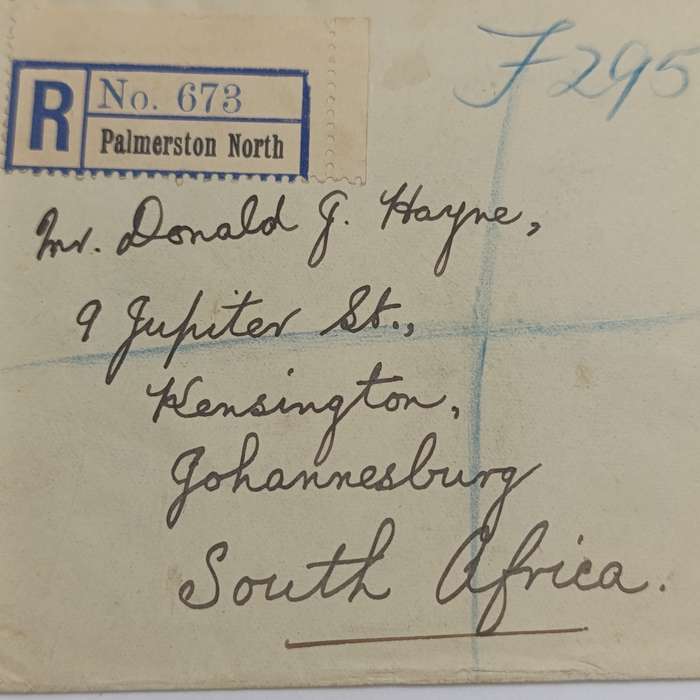 F295
R
No. 673
Palmerston North
Mr. Donald G. Hayne,
9 Jupiter St.,
Kensington,
Johannesburg
South Africa.